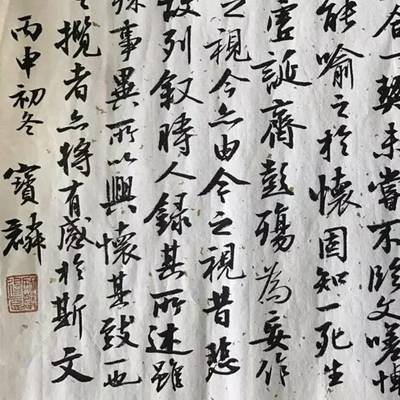 合一契未嘗不臨文嗟悼
能喻之於懷固知一死生
虛誕齊彭殤為妄作
之視今亦由今之視昔悲
故列敘時人錄其所述雖
殊事異所以興懷其致一也
之攬者亦將有感於斯文
丙申初冬 寶